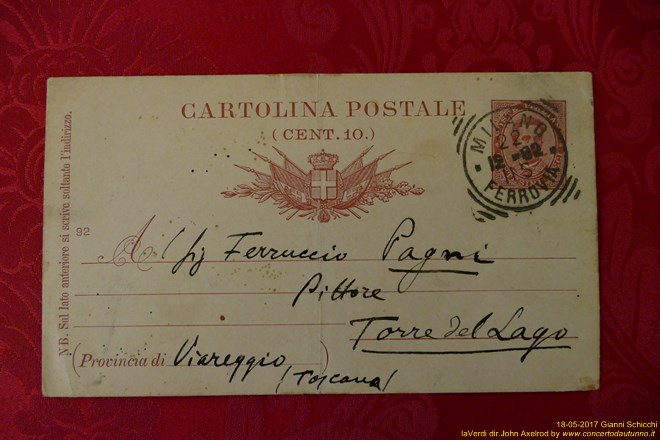 CARTOLINA POSTALE
(CENT. 10.)
MILANO
22
12 - 92
FERROVIA
NB. Sul lato anteriore si scrive soltanto l'indirizzo.
92
Al Sig Ferruccio Pagni
Pittore
Torre del Lago
(Provincia di Viareggio)
(Toscana)
18-05-2017 Gianni Schicchi
laVerdi dir.John Axelrod by www.concertodautunno.it